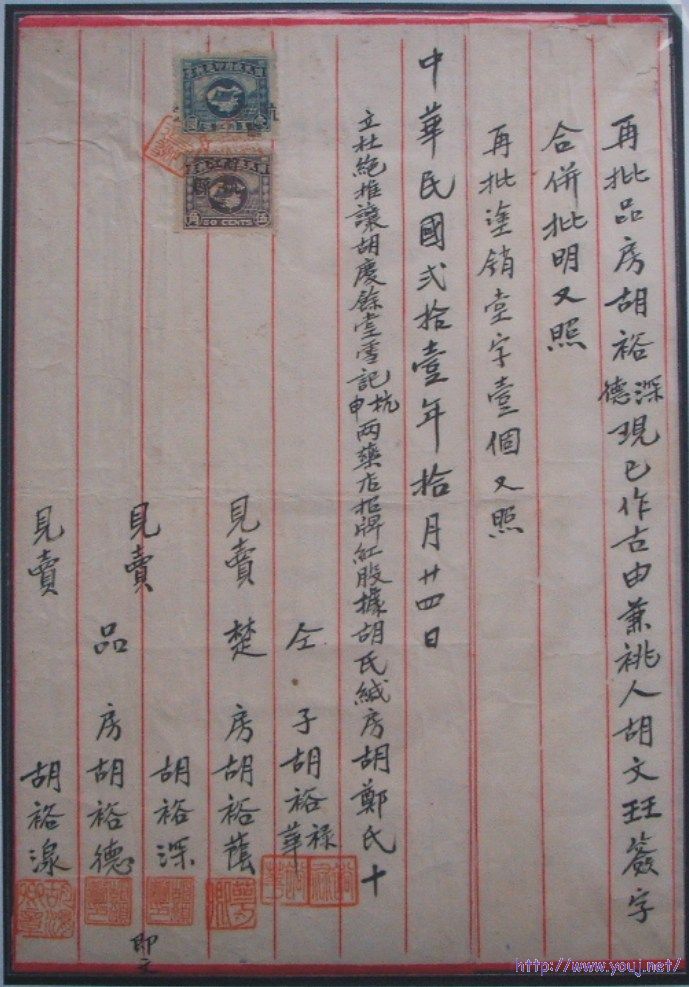 再批品房胡裕深德現已作古由兼祧人胡文珏簽字
合併批明又照
再批塗銷堂字壹個又照
中華民國弍拾壹年拾月廿四日
立杜絕推讓胡慶餘堂雪記杭申兩藥店招牌紅股據胡氏緘房胡鄭氏十
仝子胡裕祿華
見賣 楚房胡裕蔭
胡裕深
見賣 品房胡裕德
見賣 胡裕湶
即文
60 CENTS
角
http://www.youj.net/